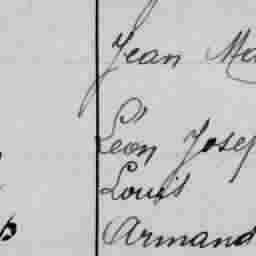 Jean Ma
Léon Josep
Louis
Armand